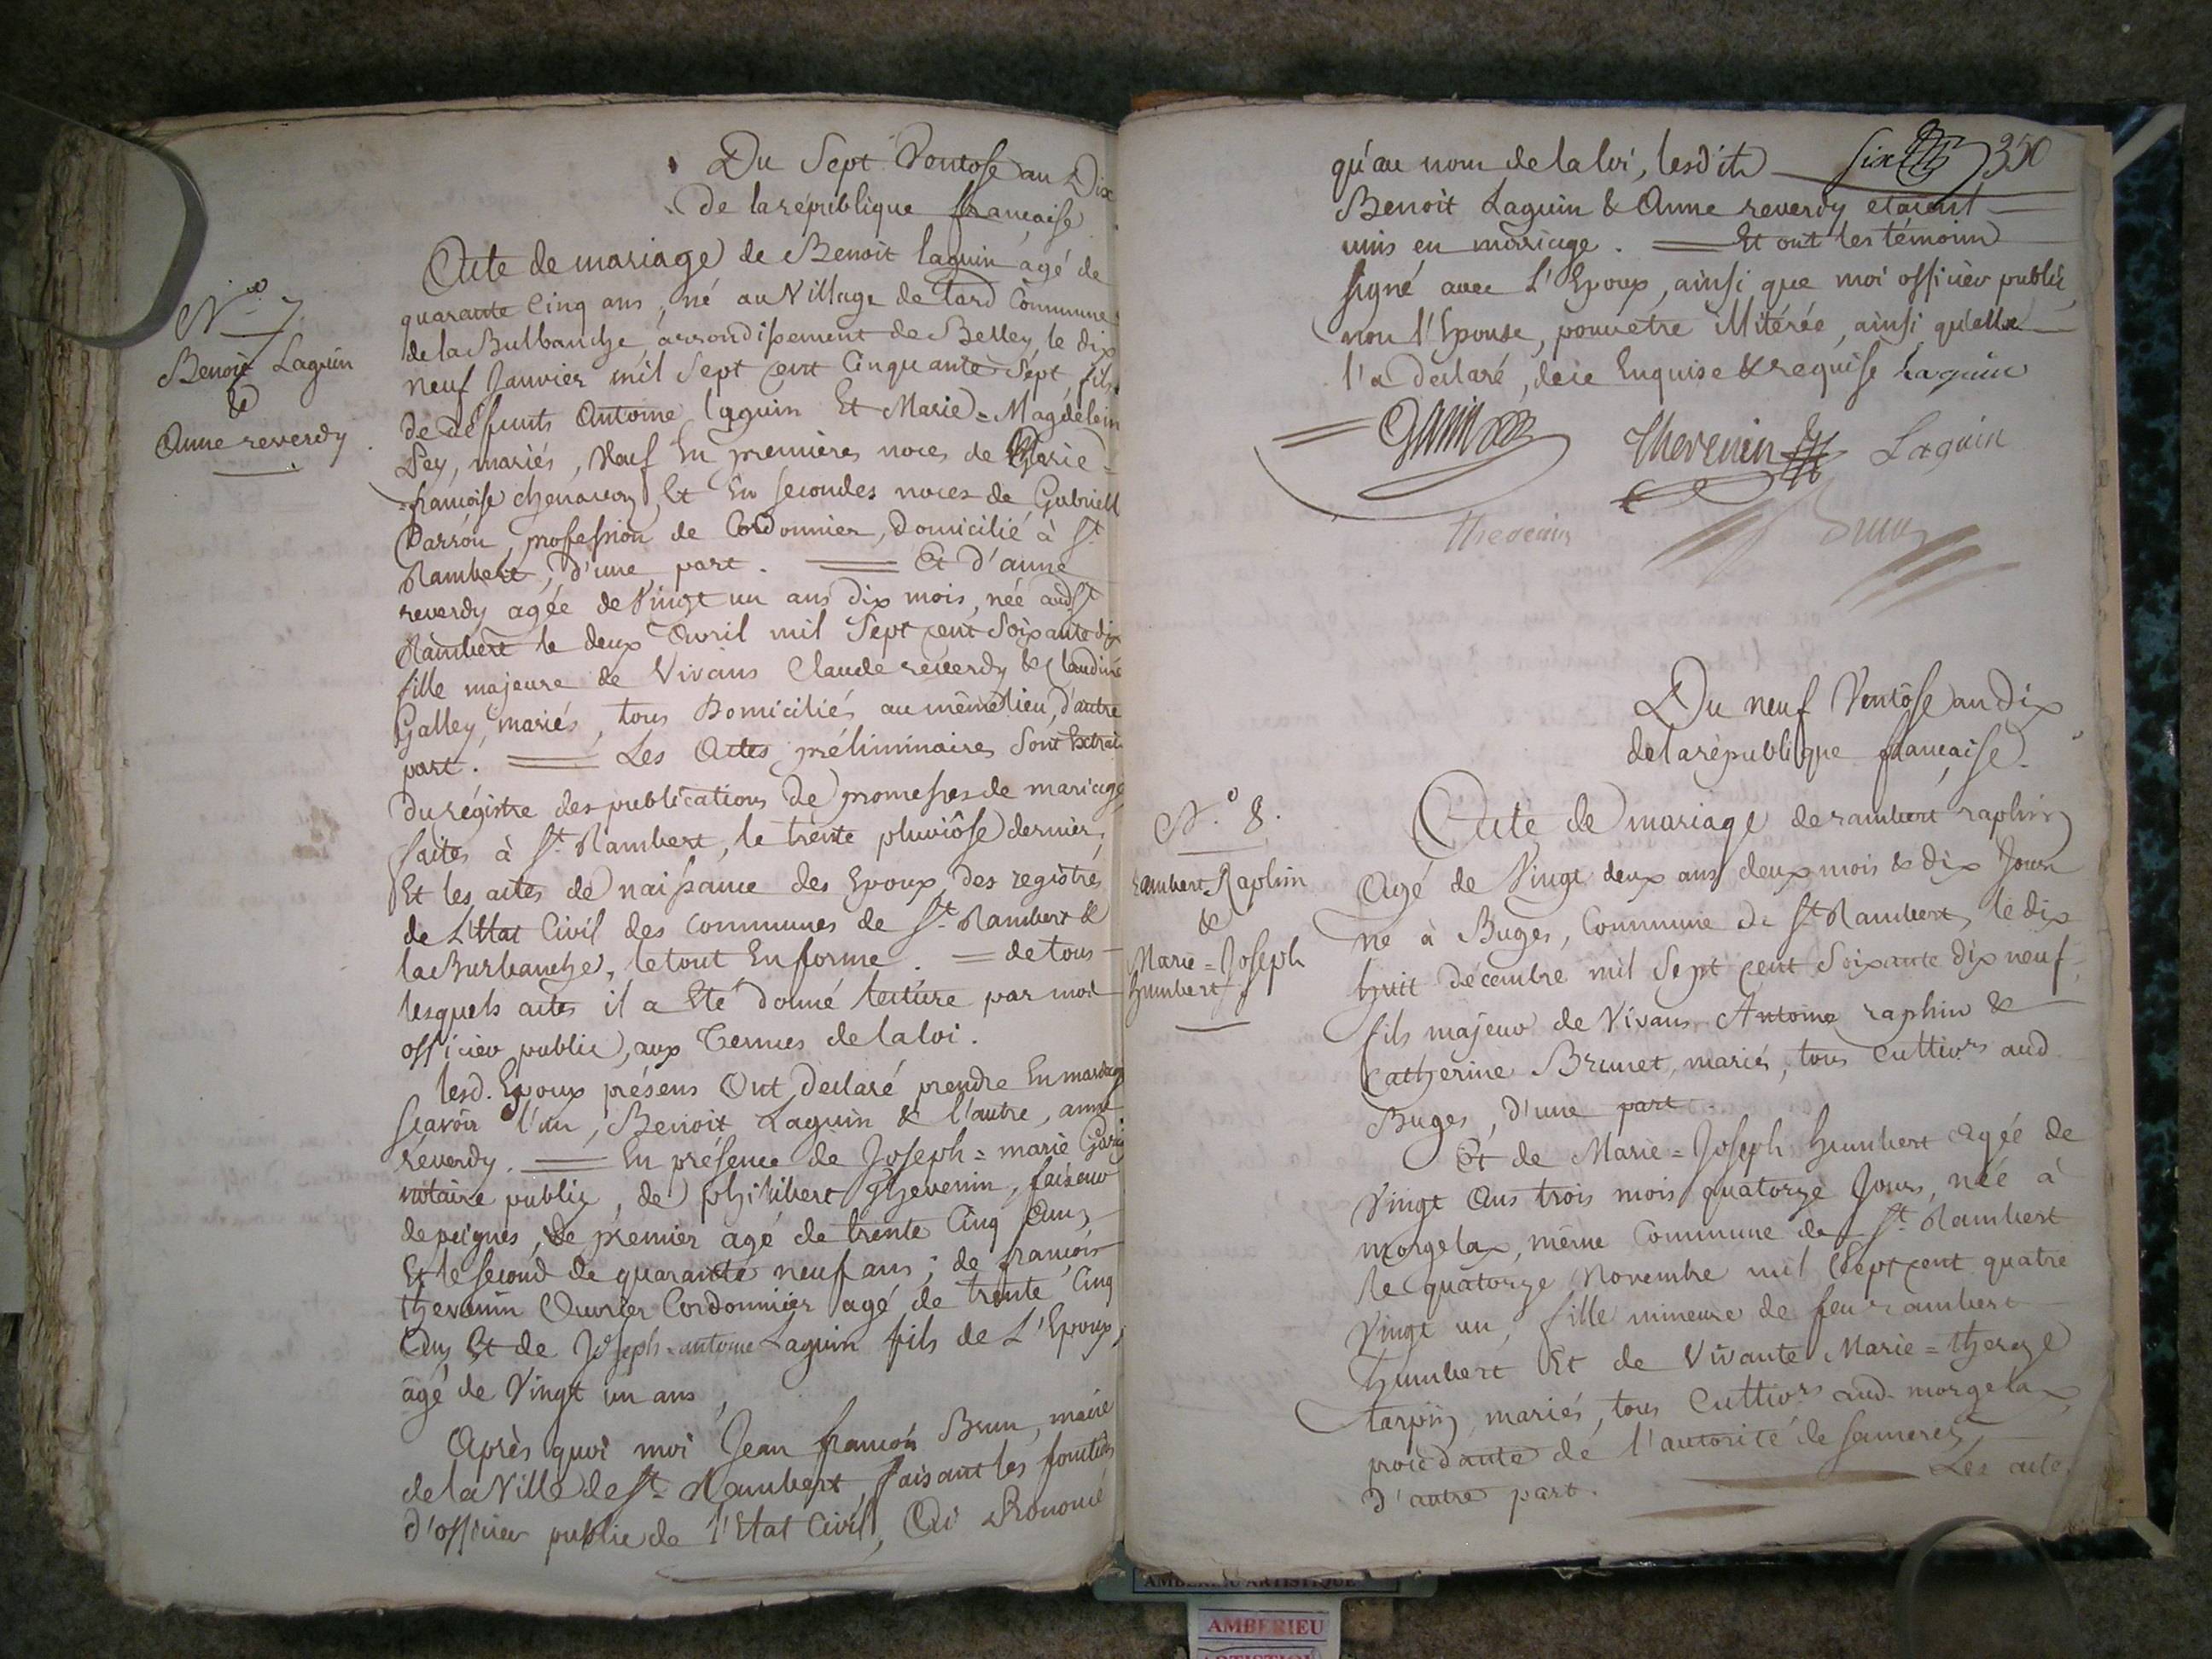 Du Sept Ventose an Dix
De la république française
N.º 7
Benoit Laguin
&
Anne reverdy
Acte de mariage de Benoit laguin agé de
quarante Cinq ans, né au Village de Lard Commune
de la Bulbanche arrondissement de Belley, le dix
neuf Janvier mil Sept cent Cinquante Sept, fils
de défunts Antoine laguin Et Marie=Magdelein
Ley, mariés, Veuf En premières noces de Marie=
françoise chenavon, Et En secondes noces de Gabriell
Darron, profession de Cordonnier, domicilié à St
Rambert, d'une part. Et d'anne
reverdy agée de Vingt un ans dix mois, née aud. St
Rambert le deux Avril mil Sept cent Soixante dix
fille majeure de Vivans Claude reverdy & Claudine
Galley, mariés, tous Domiciliés au même lieu, d'autre
part. Les Actes préliminaires Sont Extraits
du régistre des publications de promesses de mariage
faites à St Rambert, le trente pluviôse dernier,
Et les actes de naissance des Epoux, des registres
de L'Etat Civil des communes de St Rambert &
la Burbanche, le tout En forme. = de tous
lesquels actes il a Eté donné lecture par moi
officier public, aux Termes de la loi.
lesd. Epoux présens Ont déclaré prendre En mariage
Scavoir l'un, Benoit Laguin & l'autre, anne
reverdy. En présence de Joseph=marie
notaire public, de philibert Thevenin, faiseur
de peignes, le premier agé de trente Cinq ans,
Et le second de quarante neuf ans; de françois
thevenin Ouvrier Cordonnier agé de trente Cinq
ans, Et de Joseph=antoine Laguin fils de L'Epoux,
agé de Vingt un ans,
Après quoi moi Jean françois Brun, maire
de la Ville de St Rambert, faisant les fonctions
d'officier public de l'Etat Civil, Ai Prononcé
qu'au nom de la loi, lesdits
Six 350
Benoit Laguin & Anne reverdy etaient
unis en mariage. Et ont les témoins
signé avec L'Epoux, ainsi que moi officier public,
non l'Epouse, pour etre illitérée, ainsi qu'elle
l'a declaré, de ce Enquise & requise Laguin
Thevenin Laguin
Thevenin Brun
Du neuf Ventôse an dix
de la république française.
N.º 8.
rambert Raphin
&
Marie=Joseph
humbert
Acte de mariage de rambert raphin
Agé de Vingt deux ans deux mois & dix Jours
né à Buges, Commune de St Rambert, le dix
huit décembre mil Sept cent Soixante dix neuf,
fils majeur de Vivans Antoine raphin &
Catherine Brunet, mariés, tous Cultivrs aud.
Buges, d'une part.
Et de Marie=Joseph humbert Agée de
Vingt Ans trois mois quatorze Jours, née à
morgelax, même Commune de St Rambert
le quatorze Novembre mil Sept cent quatre
Vingt un, fille mineure de feu rambert
humbert Et de Vivante Marie=thereze
tarpin, mariés, tous Cultivrs aud. morgelax
procédante de l'autorité de sa mere,
d'autre part. Les actes
AMBERIEU ARTISTIQUE
AMBERIEU